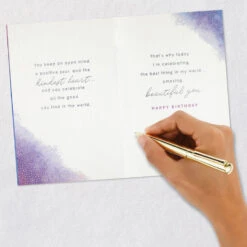 You keep an open mind,
a positive soul, and the
kindest heart,
and you celebrate
all the good
you find in the world.
That's why today
I'm celebrating
the best thing in my world,
amazing,
beautiful you.
HAPPY BIRTHDAY